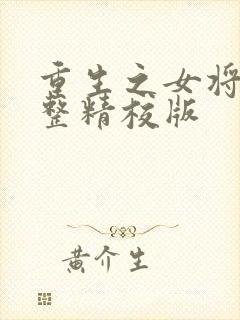 重生之女将
整精校版
黄介生